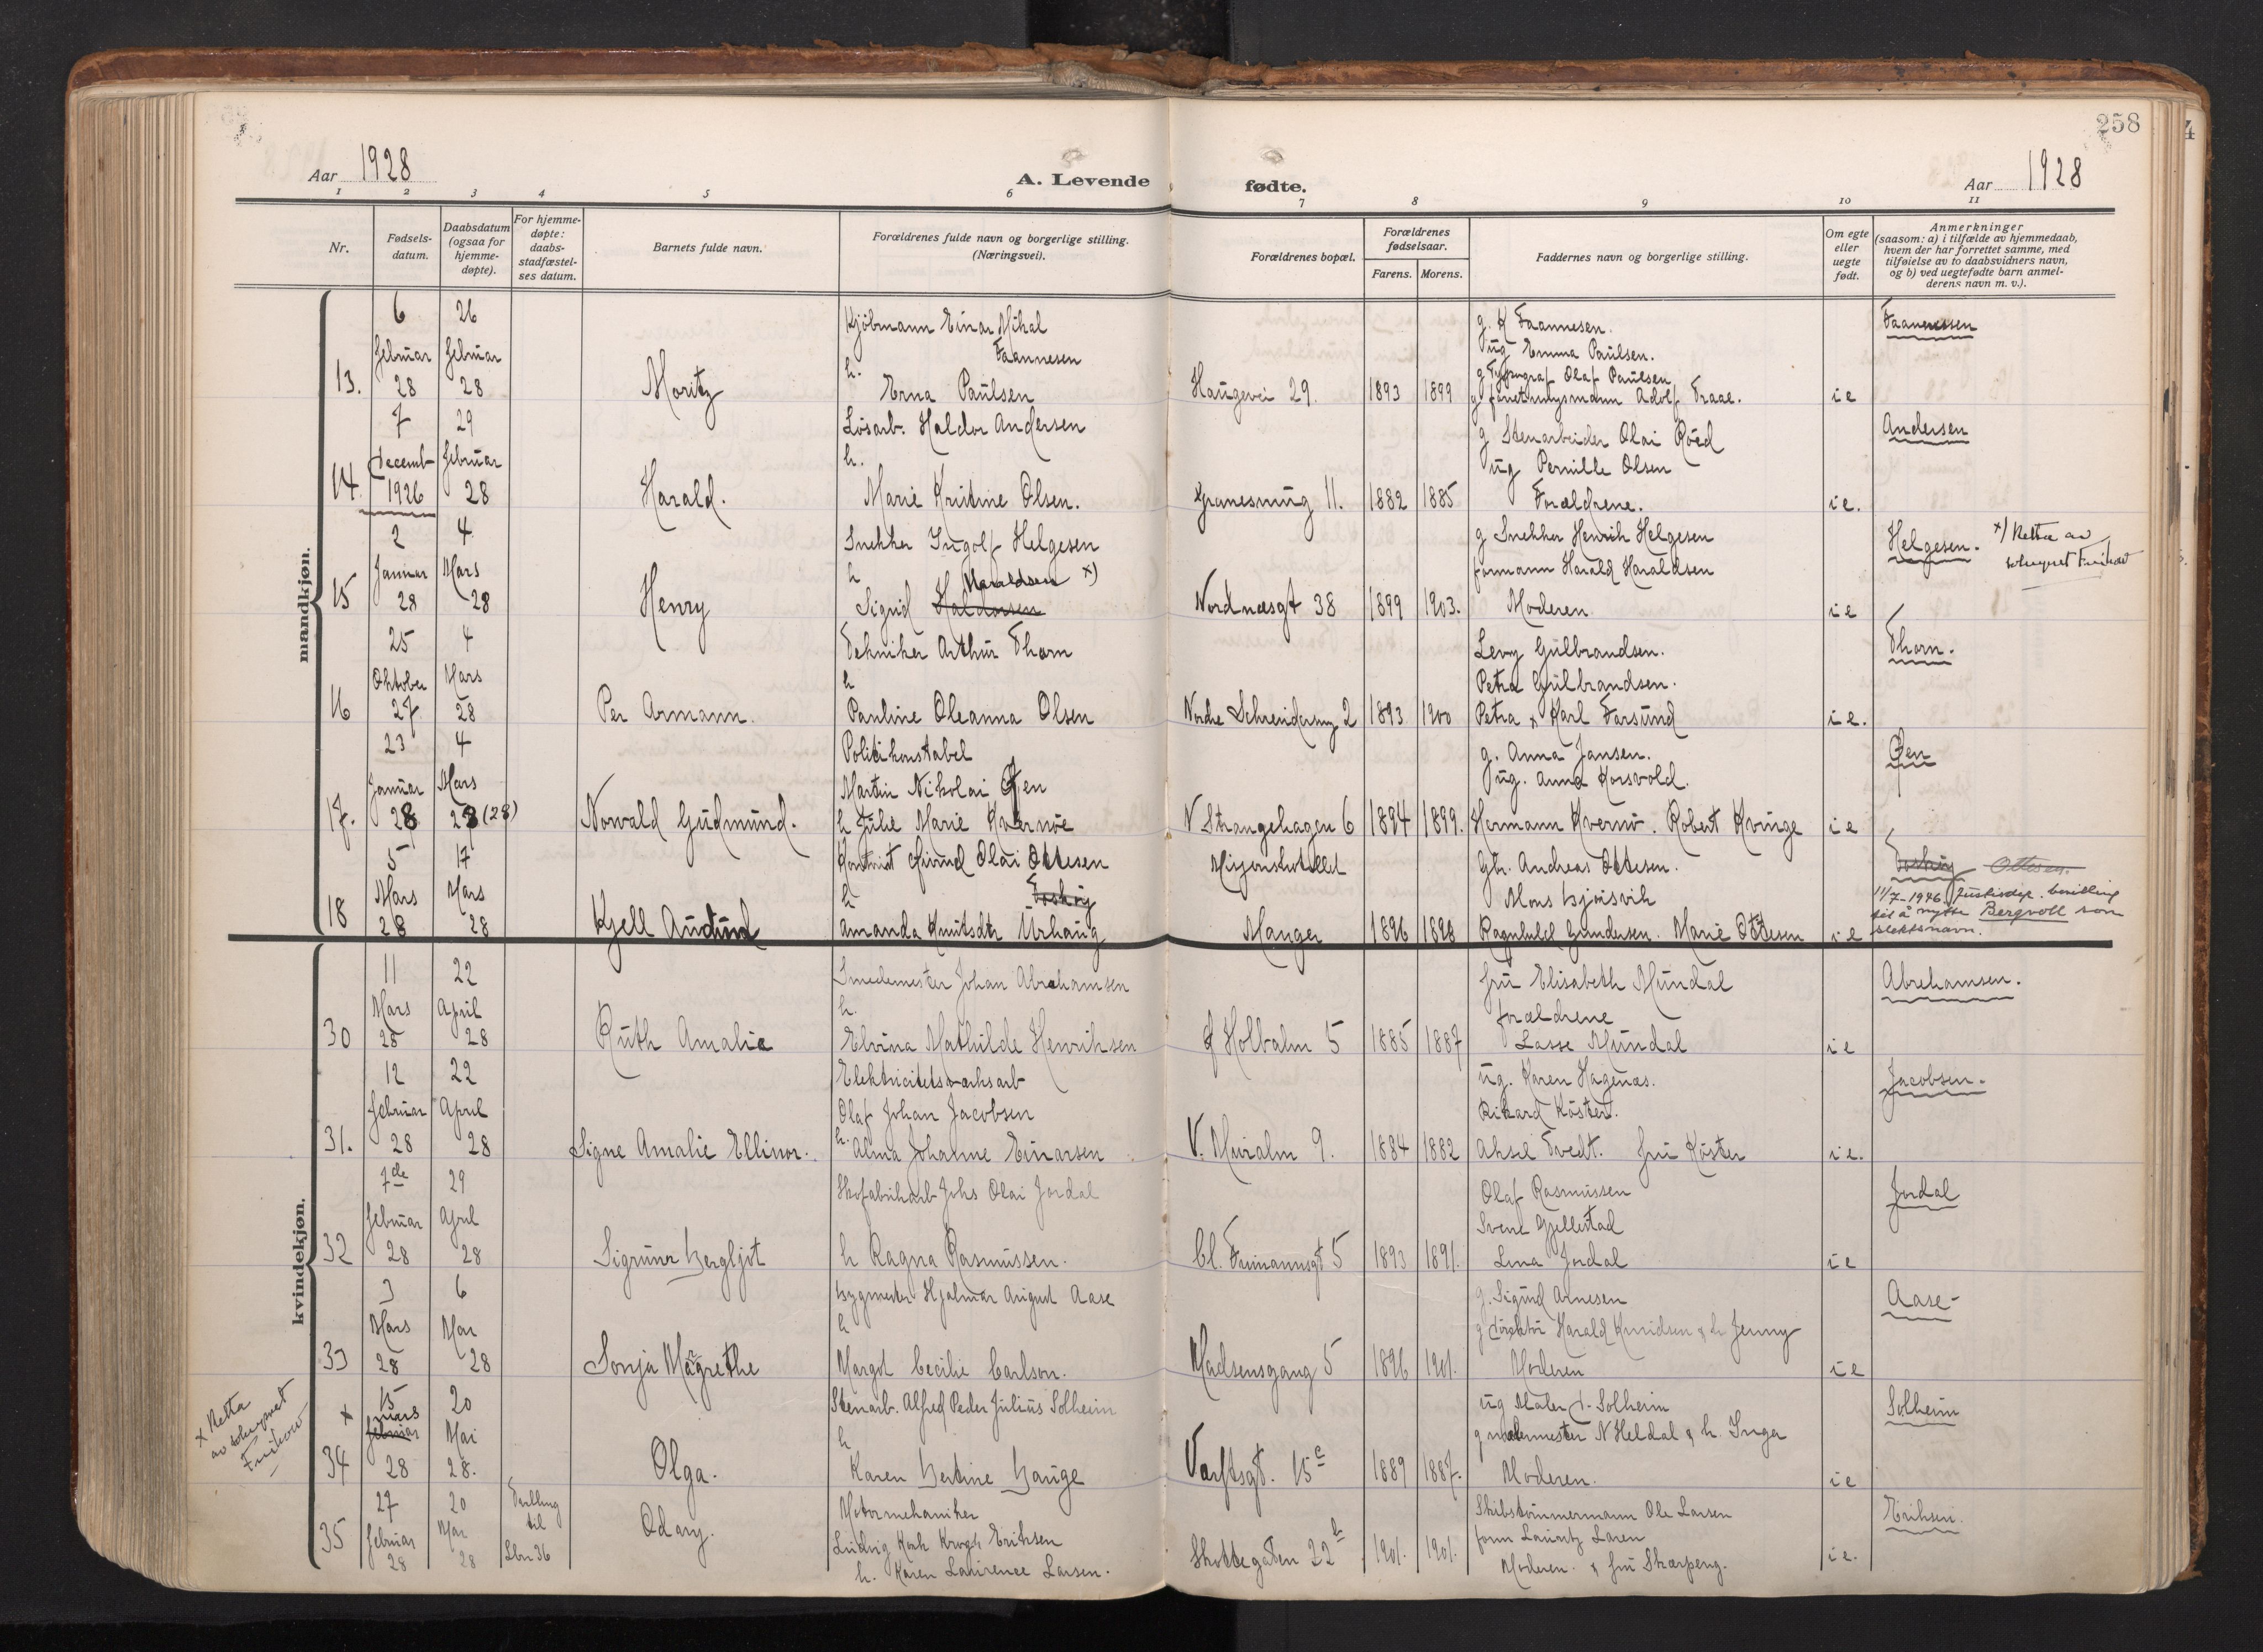 258
Aar 1928
A. Levende fødte.
Aar 1928
1 2 3 4 5 6 7 8 9 10 11
Nr.
Fødsels-
datum.
Daabsdatum
(ogsaa for
hjemme-
døpte).
For hjemme-
døpte:
daabs-
stadfæstel-
ses datum.
Barnets fulde navn.
Forældrenes fulde navn og borgerlige stilling.
(Næringsvei).
Forældrenes bopæl.
Forældrenes
fødselsaar.
Farens. Morens.
Faddernes navn og borgerlige stilling.
Om egte
eller
uegte
født.
Anmerkninger
(saasom: a) i tilfælde av hjemmedaab,
hvem der har forrettet samme, med
tilføielse av to daabsvidners navn,
og b) ved uegtefødte barn anmel-
derens navn m. v.).
mandkjøn.
13.
6 Februar 28
26 Februar 28
Moritz
Kjøbmann Einar Mikal
Faannesen
h.
Erna Paulsen
Haugevei 29.
1893 1899
g. K Faannesen.
ug Emma Paulsen.
g Typograf Olaf Paulsen
g forretningsmann Adolf Traae.
i e
Faannessen
14.
7 Decemb 1926
29 Februar 28
Harald.
Løsarb. Haldor Andersen
h.
Marie Kristine Olsen.
11. 1882 1885
g Stenarbeider Olai Røed
ug Pernille Olsen
Forældrene.
i e.
Andersen
15
2 Januar 28
4 Mars 28
Henry
Snekker Ingolf Helgesen
h Haraldsen x)
Sigrid Haldorsen
Nordnæsgt 38
1899 1903.
g Snekker Henrik Helgesen
formann Harald Haraldsen
Moderen
i e
Helgesen.
x) Retta av
sokneprest Frihow
16
25 Oktober 27
4 Mars 28
Per Armann.
Tekniker Arthur Thorn
h
Pauline Oleanna Olsen
Nordre 2
1893 1900
Levy Gulbrandsen.
Petra Gulbrandsen.
Petra & Karl Farsund
i e.
Thorn.
17.
23 Januar 28
4 Mars 28 (28)
Norvald Gudmund.
Politikonstabel
Martin Nikolai Øen
h Julie Marie Kvernøe
N Strangehagen 6
1894 1899.
g. Anna Jansen.
ug. Anna Korsvold.
Hermann Kvernø. Robert Kvinge
i e
Øen
18
5 Mars 28
17 Mars 28
Kjell Audund
Olai Ottesen
h
Amanda Knutsdtr Urhaug
Misjonshotellet
Manger
1896 1898
Gbr. Andreas Ottesen.
Mons
Ragnhild Gundersen. Marie Ottesen
i e
Ottesen.
11/7-1946 Justisdep. bevilling
til å nytte Bergvoll som
slektsnavn.
kvindekjøn.
30
11 Mars 28
22 April 28
Ruth Amalie
Smedemester Johan Abrahamsen
h.
Elvina Mathilde Henriksen
Holbalm 5
1885 1887
fru Elisabeth Mundal
forældrene
Lasse Mundal
i e
Abrehamsen.
31.
12 Februar 28
22 April 28
Signe Amalie Ellinor.
Elektricitetsværksarb
Olaf Johan Jacobsen
h. Alma Johanne Einarsen
V. Muralm 9.
1884 1882
ug. Karen Hagenæs.
Rikard Köster.
Aksel Tvedt. fru Köster
i e.
Jacobsen.
32
7de Februar 28
29 April 28
Sigrunn Bergljot
Skofabrikarb Johs Olai Jordal
h Ragna Rasmussen.
Cl. Fuimannsgt 5
1893 1891.
Olaf Rasmussen
Svene Gjellestad
Lina Jordal
i e
Jordal
33
3 Mars 28
6 Mai 28
Sonja Margrethe
Bygmester Hjalmar August Aase
h
Margot Cecilie Carlson.
Madsensgang 5
1896 1901.
g. Sigurd Arnesen
g direktør Harald Knudsen & h Jenny
Moderen
i e
Aase-
x Retta
av sokneprest
Frihow
x
34
15 mars Februar 28
20 Mai 28.
Olga.
Stenarb. Alfred Peder Julius Solheim
h
Karen Bertine Hauge
Verftsgt. 15c
1889 1887.
ug Maler A. Solheim
g malermester N Heldal & h. Inga
Moderen.
i e
Solheim
35
27 Februar 28
20 Mai 28
Tvilling
til
Lbn 36
Odany.
Motormekaniker
Ludvig Kork Krogh Eriksen
h. Karen Laurence Larsen.
Skottegaten 22b
1901. 1901.
Skibstømmermann Ole Larsen
form Lauritz Laren
Moderen. & fru Skarpeng.
i e.
Eriksen.